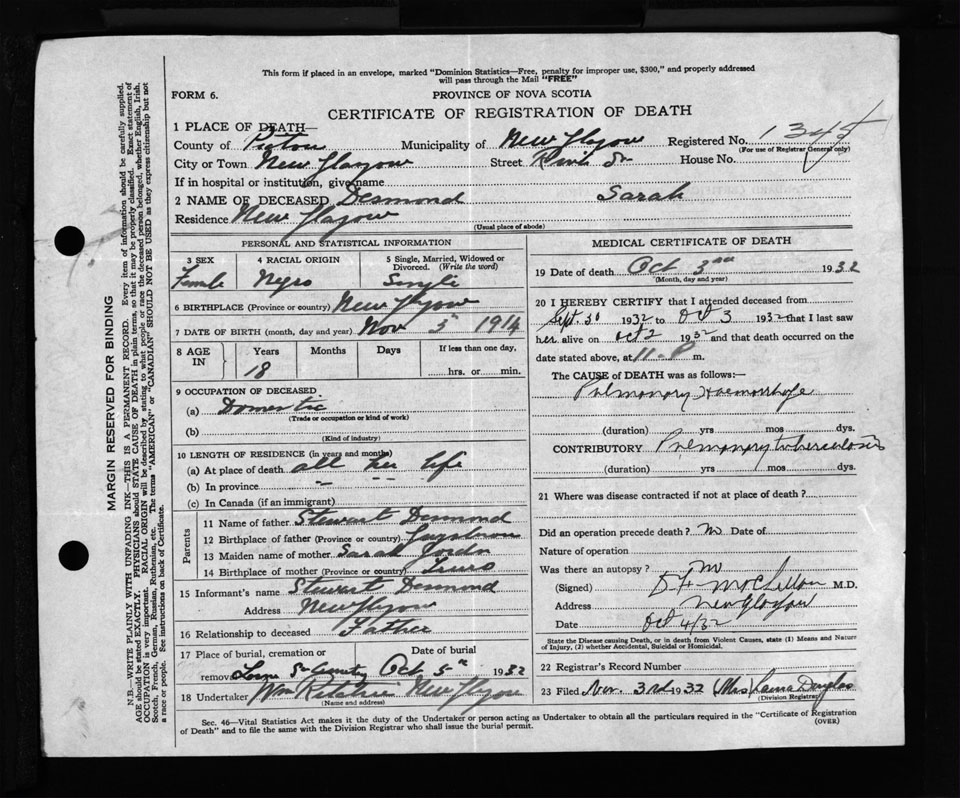 This form if placed in an envelope, marked "Dominion Statistics—Free, penalty for improper use, $300," and properly addressed
will pass through the Mail "FREE"
FORM 6.
PROVINCE OF NOVA SCOTIA
CERTIFICATE OF REGISTRATION OF DEATH
1 PLACE OF DEATH—
County of Pictou Municipality of New Glasgow Registered No. 1345
(For use of Registrar General only)
City or Town New Glasgow Street House No.
If in hospital or institution, give name
2 NAME OF DECEASED Desmond Sarah
Residence New Glasgow
(Usual place of abode)
PERSONAL AND STATISTICAL INFORMATION
3 SEX 4 RACIAL ORIGIN 5 Single, Married, Widowed or
Divorced. (Write the word)
Female Negro Single
6 BIRTHPLACE (Province or country) New Glasgow
7 DATE OF BIRTH (month, day and year) Nov 5 1914
8 AGE IN Years Months Days If less than one day,
18 hrs. or min.
9 OCCUPATION OF DECEASED
(a) Domestic
(Trade or occupation or kind of work)
(b)
(Kind of industry)
10 LENGTH OF RESIDENCE (in years and months)
(a) At place of death all her life
(b) In province " "
(c) In Canada (if an immigrant)
Parents
11 Name of father Stewart Desmond
12 Birthplace of father (Province or country)
13 Maiden name of mother Sarah
14 Birthplace of mother (Province or country) Truro
15 Informant's name Stewart Desmond
Address New Glasgow
16 Relationship to deceased Father
17 Place of burial, cremation or Date of burial
removal Oct 5th 1932
18 Undertaker Wm Ritchie New Glasgow
(Name and address)
MEDICAL CERTIFICATE OF DEATH
19 Date of death Oct 3rd 1932
(Month, day and year)
20 I HEREBY CERTIFY that I attended deceased from
Sept. 30 1932 to Oct 3 1932 that I last saw
her alive on Oct 2 1932 and that death occurred on the
date stated above, at 11-P m.
The CAUSE of DEATH was as follows:—
Pulmonary Haemorrhage
(duration) yrs mos dys.
CONTRIBUTORY Pulmonary tuberculosis
(duration) yrs mos dys.
21 Where was disease contracted if not at place of death?
Did an operation precede death? no Date of
Nature of operation
Was there an autopsy? no
(Signed) M.D.
Address New Glasgow
Date Oct 4/32
State the Disease causing Death, or in death from Violent Causes, state (1) Means and Nature
of Injury, (2) whether Accidental, Suicidal or Homicidal.
22 Registrar's Record Number
23 Filed Nov. 3rd 1932 (Mrs) Douglas
(Division Registrar)
Sec. 46—Vital Statistics Act makes it the duty of the Undertaker or person acting as Undertaker to obtain all the particulars required in the "Certificate of Registration
of Death" and to file the same with the Division Registrar who shall issue the burial permit.
(OVER)
MARGIN RESERVED FOR BINDING
N.B.—WRITE PLAINLY WITH UNFADING INK—THIS IS A PERMANENT RECORD. Every item of information should be carefully supplied.
AGE should be stated EXACTLY. PHYSICIANS should STATE CAUSE OF DEATH in plain terms, so that it may be properly classified. Exact statement of
OCCUPATION is very important. RACIAL ORIGIN will be described by stating to what people or race the deceased person belonged, whether English, Irish,
Scotch, French, German, Russian, Ruthenian, etc. The terms "AMERICAN" or "CANADIAN" SHOULD NOT BE USED as they express citizenship but not
a race or people. See instructions on back of Certificate.